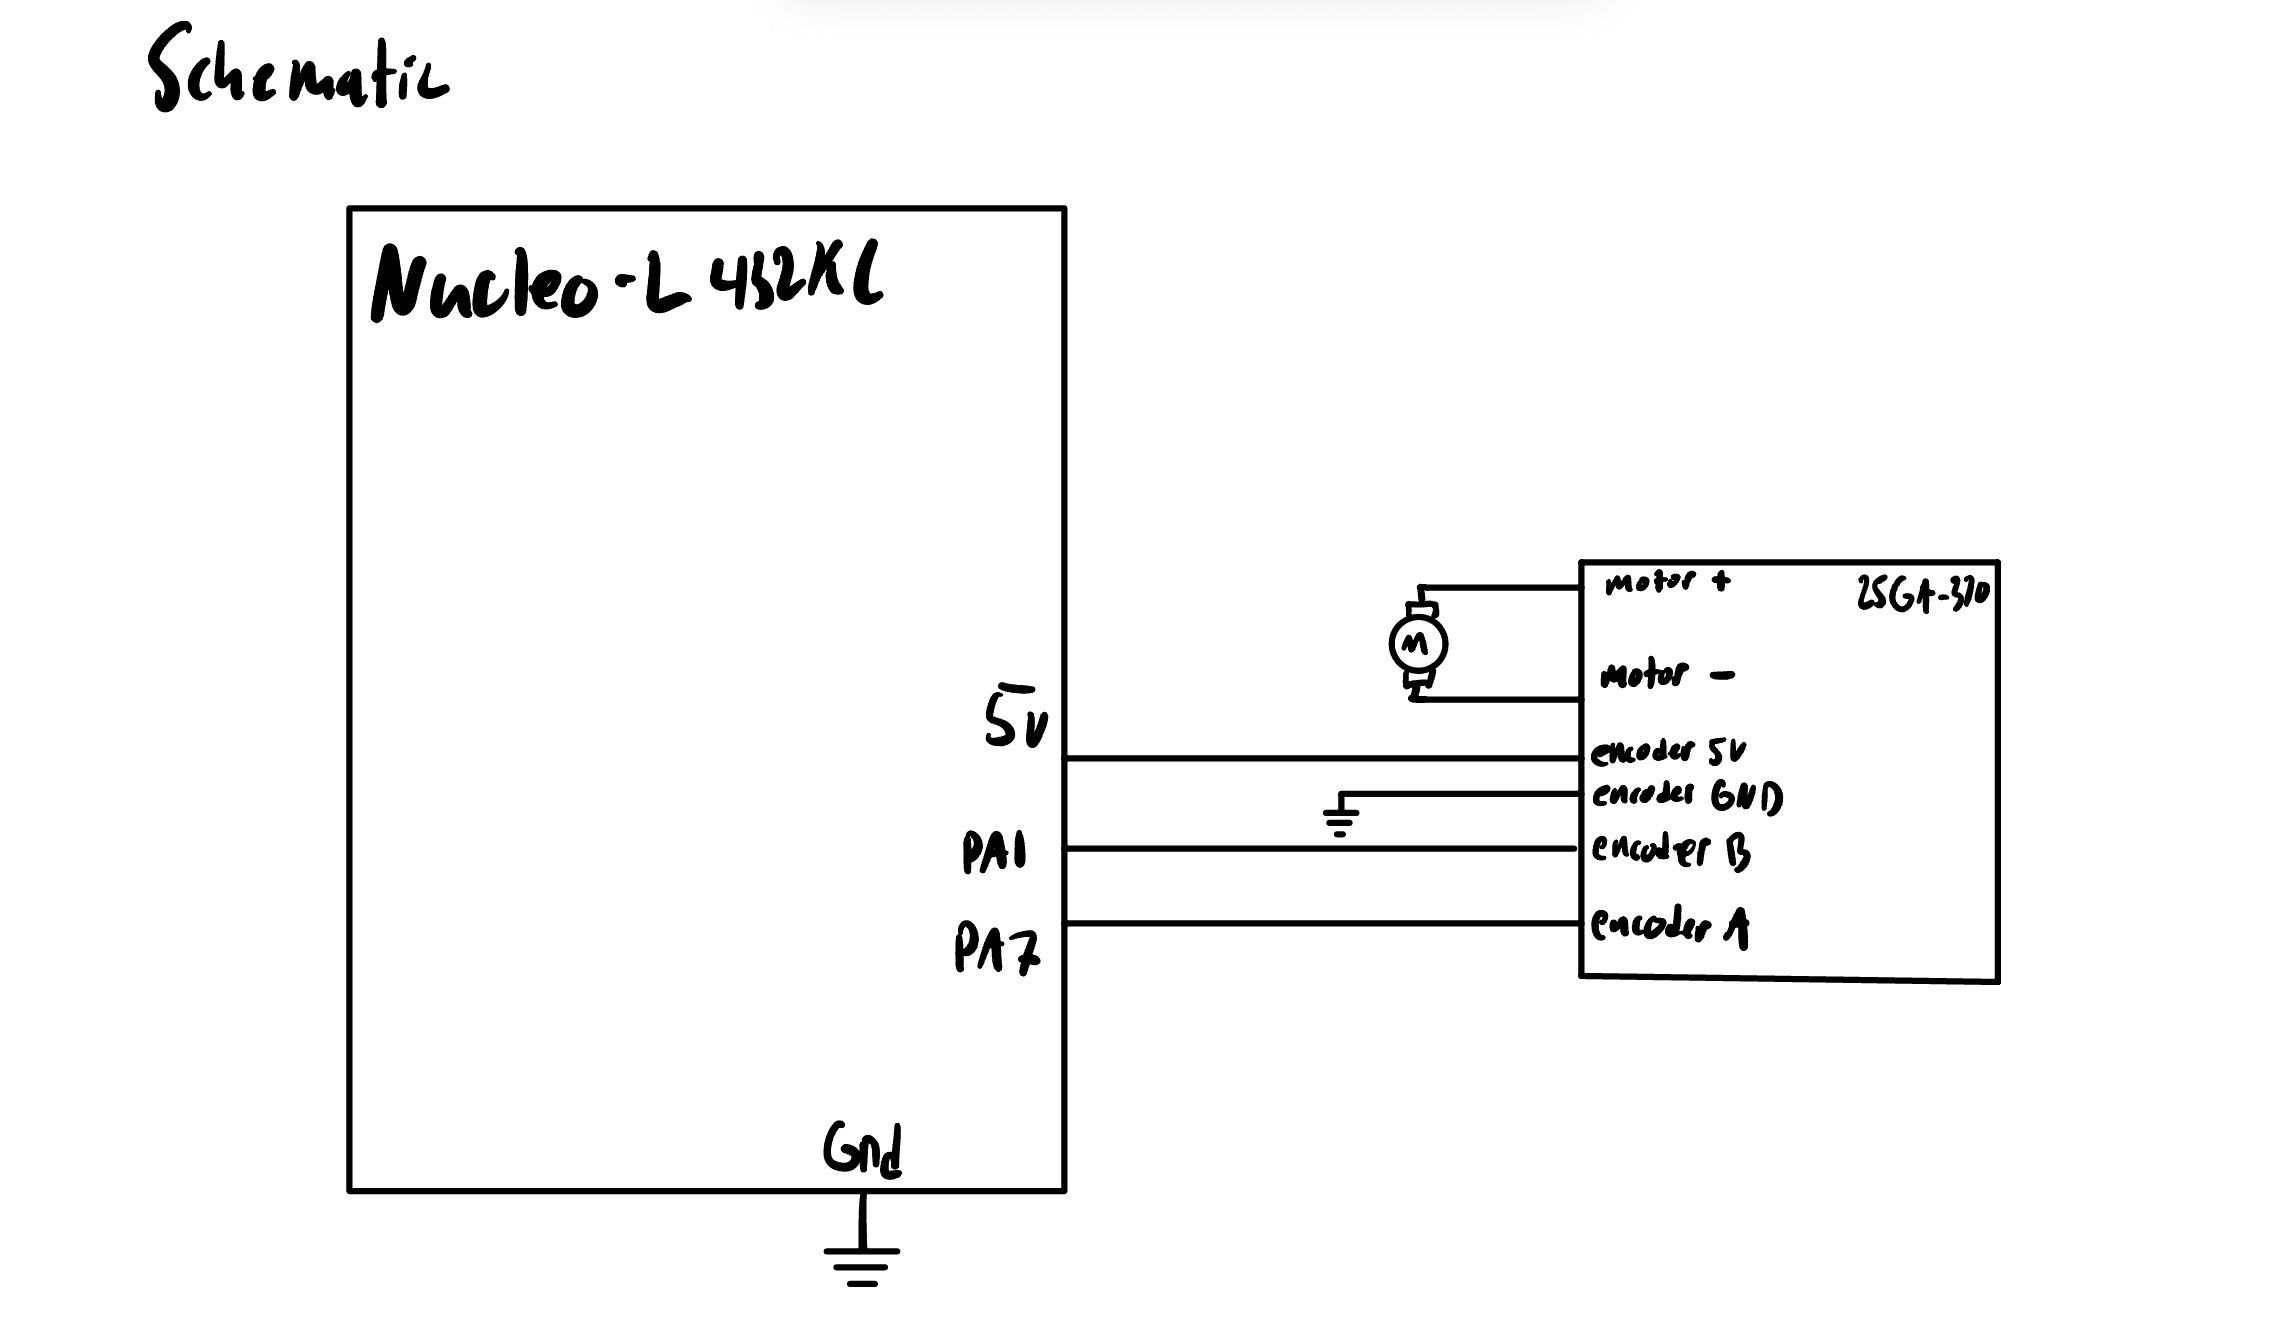 Schematic
Nucleo-L432KC
5V
PA1
PA7
Gnd
M
motor +
25GA-370
motor -
encoder 5V
encoder GND
encoder B
encoder A